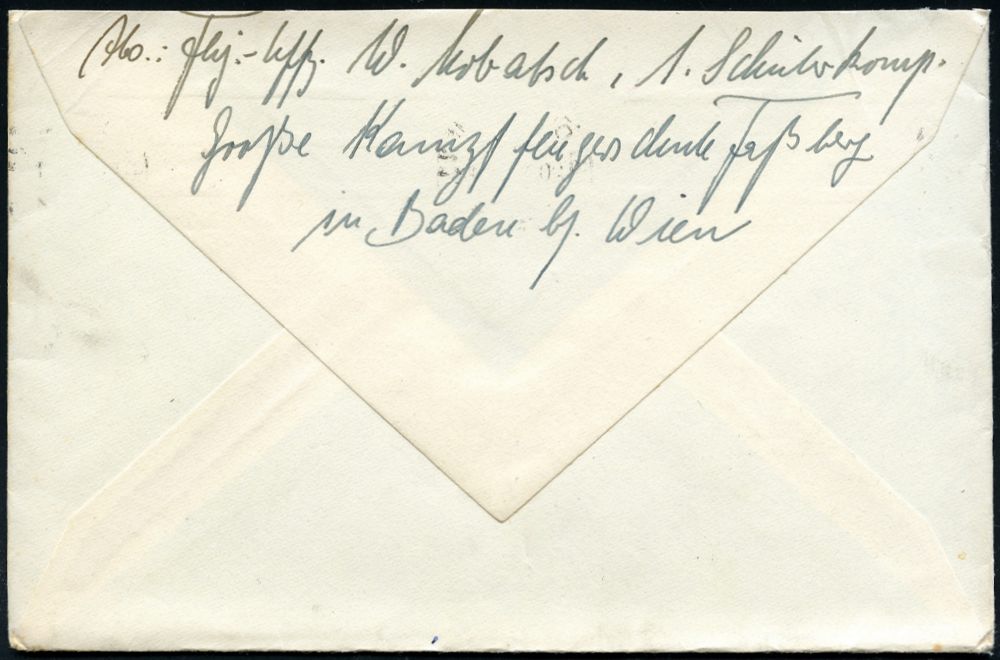 Abs.: Flg.-Uffz. W. Kobatsch, 1. Schülerkomp.
Große Kampffliegerschule Faßberg
in Baden b/. Wien